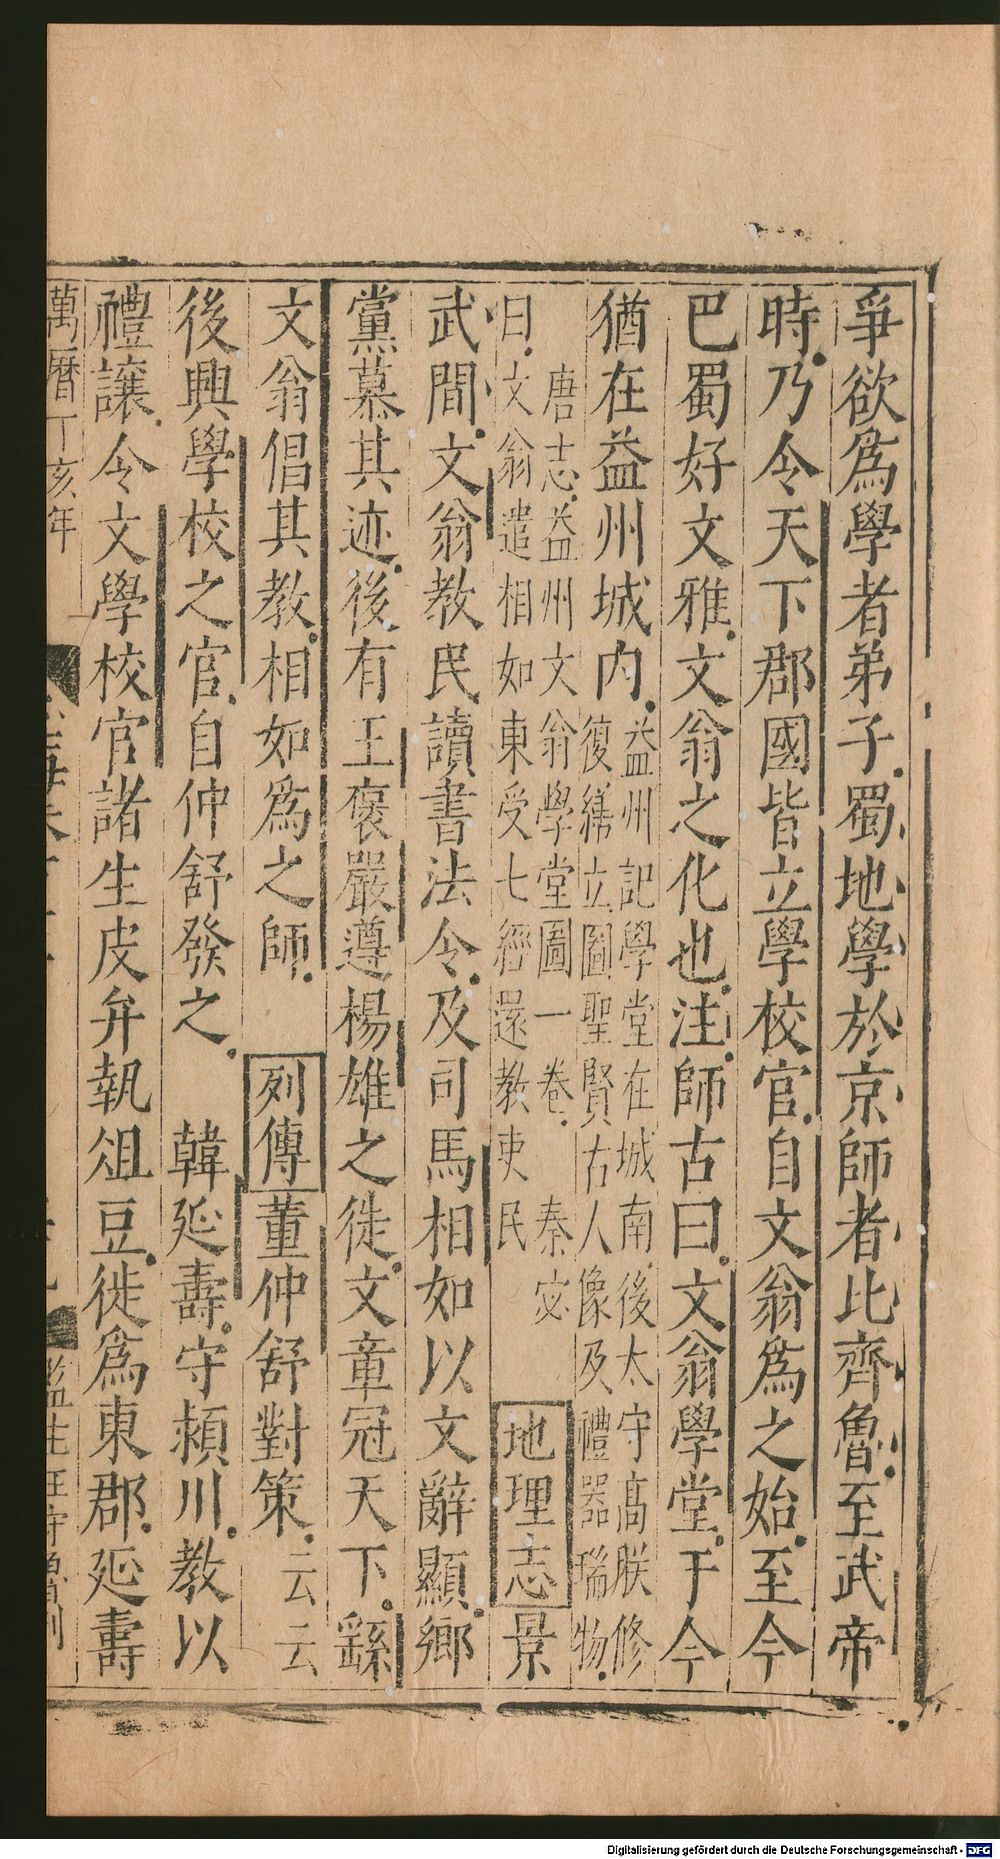 爭欲爲學者弟子蜀地學於京師者比齊魯至武帝
時乃令天下郡國皆立學校官自文翁爲之始至今
巴蜀好文雅文翁之化也注師古曰文翁學堂于今
猶在益州城内
益州記學堂在城南後太守高朕修
復繕立圖聖賢古人像及禮器瑞物
唐志益州文翁學堂圖一卷 秦宓
曰文翁遣相如東受七經還教吏民
地理志景
武間文翁教民讀書法令及司馬相如以文辭顯鄉
黨慕其迹後有王褒嚴遵楊雄之徒文章冠天下繇
文翁倡其教相如爲之師 列傳董仲舒對策云云
後興學校之官自仲舒發之 韓延壽守潁川教以
禮讓令文學校官諸生皮弁執俎豆徙爲東郡延壽
萬曆丁亥年
監生王
Digitalisierung gefördert durch die Deutsche Forschungsgemeinschaft - DFG